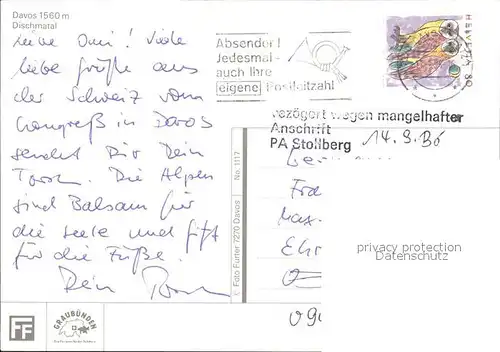 Davos 1560 m
Dischmatal
Liebe Omi! Viele
liebe Grüße aus
der Schweiz vom
Kongreß in Davos
sendet Dir Dein
Torsten. Die Alpen
sind Balsam für
die Seele und Gift
für die Füße.
Dein Torsten
FF
GRAUBÜNDEN
© Foto Furter 7270 Davos
No. 1117
Absender!
Jedesmal
auch Ihre
eigene Postleitzahl
HELVETIA 80
verzögert wegen mangelhafter
Anschrift
PA Stollberg
14. 9.
Fra
Max-
Ehr
privacy protection
Datenschutz